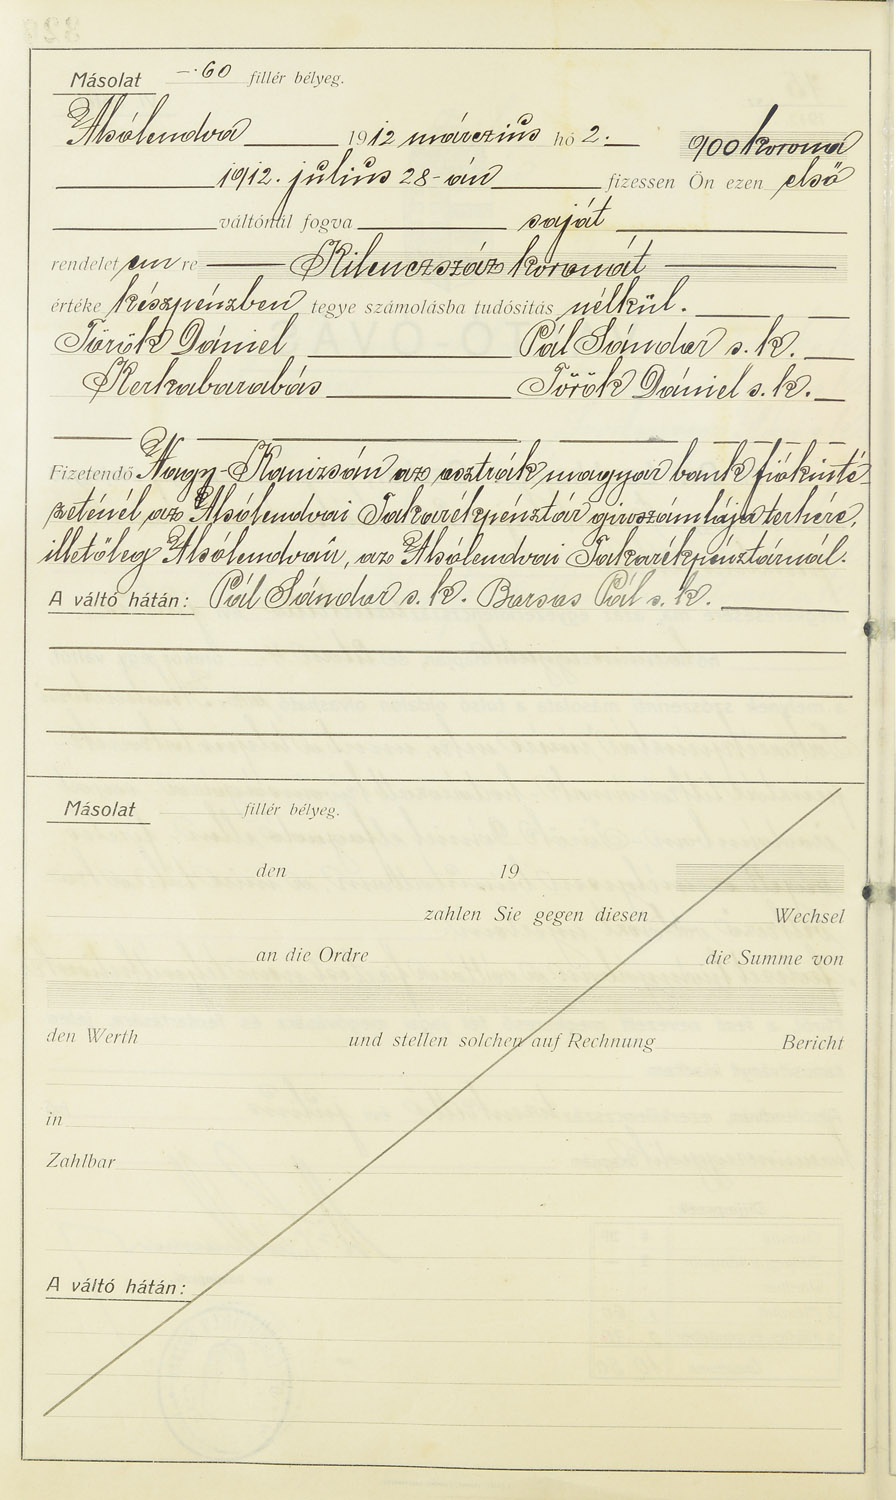 Másolat —·60 fillér bélyeg.
Alsólendva 1912 márczius hó 2. 900 korona
1912. július 28-án fizessen Ön ezen első
váltónál fogva saját
rendeletem re Kilenczszáz koronát
értéke készpénzben tegye számolásba tudósítás nélkül.
Török Dániel Pál Sándor s. k.
Kerkabarabás Török Dániel s. k.
Fizetendő Nagy-Kanizsán az osztrák magyar bank fiókinté-
zeténél az Alsólendvai Takarékpénztár giroszámlája terhére,
illetőleg Alsólendván, az Alsólendvai Takarékpénztárnál.
A váltó hátán: Pál Sándor s. k. Barsas Pál s. k.
Másolat fillér bélyeg.
den 19
zahlen Sie gegen diesen Wechsel
an die Ordre die Summe von
den Werth und stellen solchen auf Rechnung Bericht
in
Zahlbar
A váltó hátán: